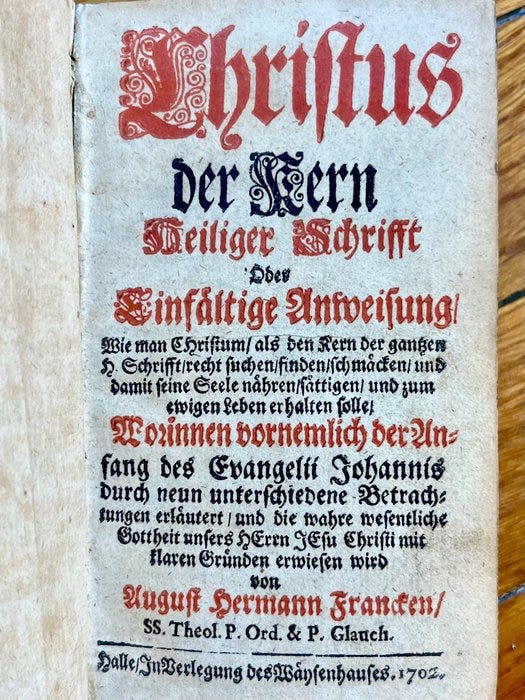 Christus
der Kern
Heiliger Schrifft
Oder
Einfältige Anweisung/
Wie man CHristum/ als den Kern der gantzen
H. Schrifft/recht suchen/finden/schmäcken/ und
damit seine Seele nähren/sättigen/ und zum
ewigen Leben erhalten solle/
Worinnen vornemlich der An-
fang des Evangelii Johannis
durch neun unterschiedene Betrach-
tungen erläutert/und die wahre wesentliche
Gottheit unsers HErrn JEsu Christi mit
klaren Gründen erwiesen wird
von
August Hermann Francken/
SS. Theol. P. Ord. & P. Glauch.
Halle/In Verlegung des Wäysenhauses. 1702.